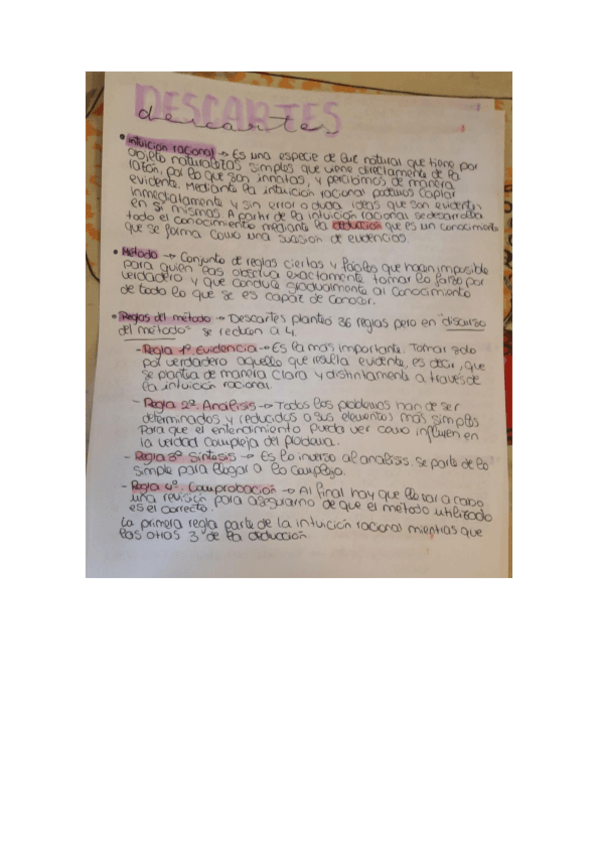 DESCARTES
descartes
• Intuición racional → Es una especie de luz natural que tiene por
objeto naturalezas simples que viene directamente de la
razón, por lo que son innatas, y percibimos de manera
evidente. Mediante la intuición racional podemos captar
inmediatamente y sin error o duda ideas que son evidentes
en sí mismas. A partir de la intuición racional se desarrolla
todo el conocimiento mediante la deducción que es un conocimiento
que se forma como una sucesión de evidencias.
• Método → Conjunto de reglas ciertas y fáciles que hacen imposible
para quien las observa exactamente tomar lo falso por
verdadero y que conduce gradualmente al conocimiento
de todo lo que se es capaz de conocer.
• Reglas del método → Descartes planteó 36 reglas pero en "discurso
del método" se reducen a 4.
- Regla 1º Evidencia → Es la más importante. Tomar solo
por verdadero aquello que resulta evidente, es decir, que
se plantea de manera clara y distintamente a través de
la intuición racional.
- Regla 2º. Análisis → Todos los problemas han de ser
determinados y reducidos a sus elementos más simples
Para que el entendimiento pueda ver como influyen en
la verdad compleja del
- Regla 3º Síntesis → Es lo inverso al análisis. Se parte de lo
simple para llegar a lo complejo.
- Regla 4º. Comprobación → Al final hay que llevar a cabo
una revisión para asegurarno de que el método utilizado
es el correcto.
La primera regla parte de la intuición racional mientras que
las otras 3 de la deducción.